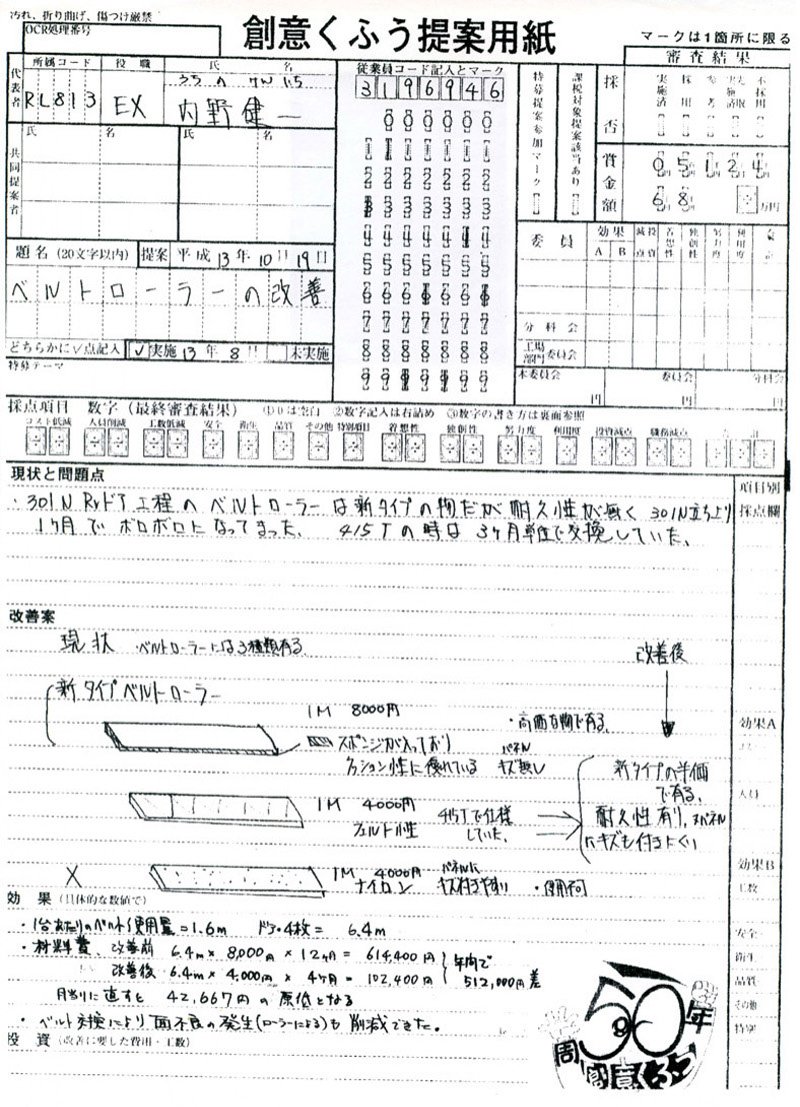 汚れ、折り曲げ、傷つけ厳禁
OCR処理番号
創意くふう提案用紙
マークは1箇所に限る
審査結果
代表者
所属コード 役職 氏 名
RL813 EX 内野健一
従業員コード記入とマーク
3196946
特募提案参加マーク
課税対象提案該当あり
採否
実施済 採用 参考 不採用
賞金額
05124
68
万円
共同提案者
氏 名 氏 名
題名(20文字以内) 提案 平成13年10月19日
ベルトローラーの改善
どちらかに✓点記入 ✓実施13年8月 未実施
特募テーマ
委員 効果 A B 減点 着想性 独創性 努力度 利用度 合計
分科会
工場部門委員会
本委員会 円 委員会 円 分科会 円
採点項目 数字(最終審査結果) ①0は空白 ②数字記入は右詰め ③数字の書き方は裏面参照
コスト低減 人員削減 工数低減 安全 衛生 品質 その他 特別項目 着想性 独創性 努力度 利用度 投資減点 職務減点 合計
現状と問題点
項目別採点欄
・301N Rrドア工程のベルトローラーは新タイプの物だが耐久性が無く301N立ちより
1ヶ月でボロボロになってまった、 415Tの時は3ヶ月単位で交換していた、
改善案
現状 ベルトローラーには3種類有る
改善後
新タイプベルトローラー
1M 8000円
・高価な物で有る、
スポンジが入っており パネル
クッション性に優れている キズ無し
1M 4000円 415Tで仕様
フェルト性 していた、
新タイプの半価
で有る、
耐久性有り、又パネル
にキズも付きにくい
X
1M 4000円 パネルに
ナイロン キズ付きやすい ・使用不可
効果A
人員
効果B
工数
安全
衛生
品質
その他
特別
効果(具体的な数値で)
・1台あたりのベルト使用量=1.6m ドア・4枚= 6.4m
・材料費、改善前 6.4m × 8,000円 × 12ヶ月 = 614,400円
改善後 6.4m × 4,000円 × 4ヶ月 = 102,400円
年間で
512,000円差
月当りに直すと 42,667円の原低となる
・ベルト交換により面不良の発生(ローラーによる)も削減できた。
投資(改善に要した費用・工数)
50周年
創意くふう